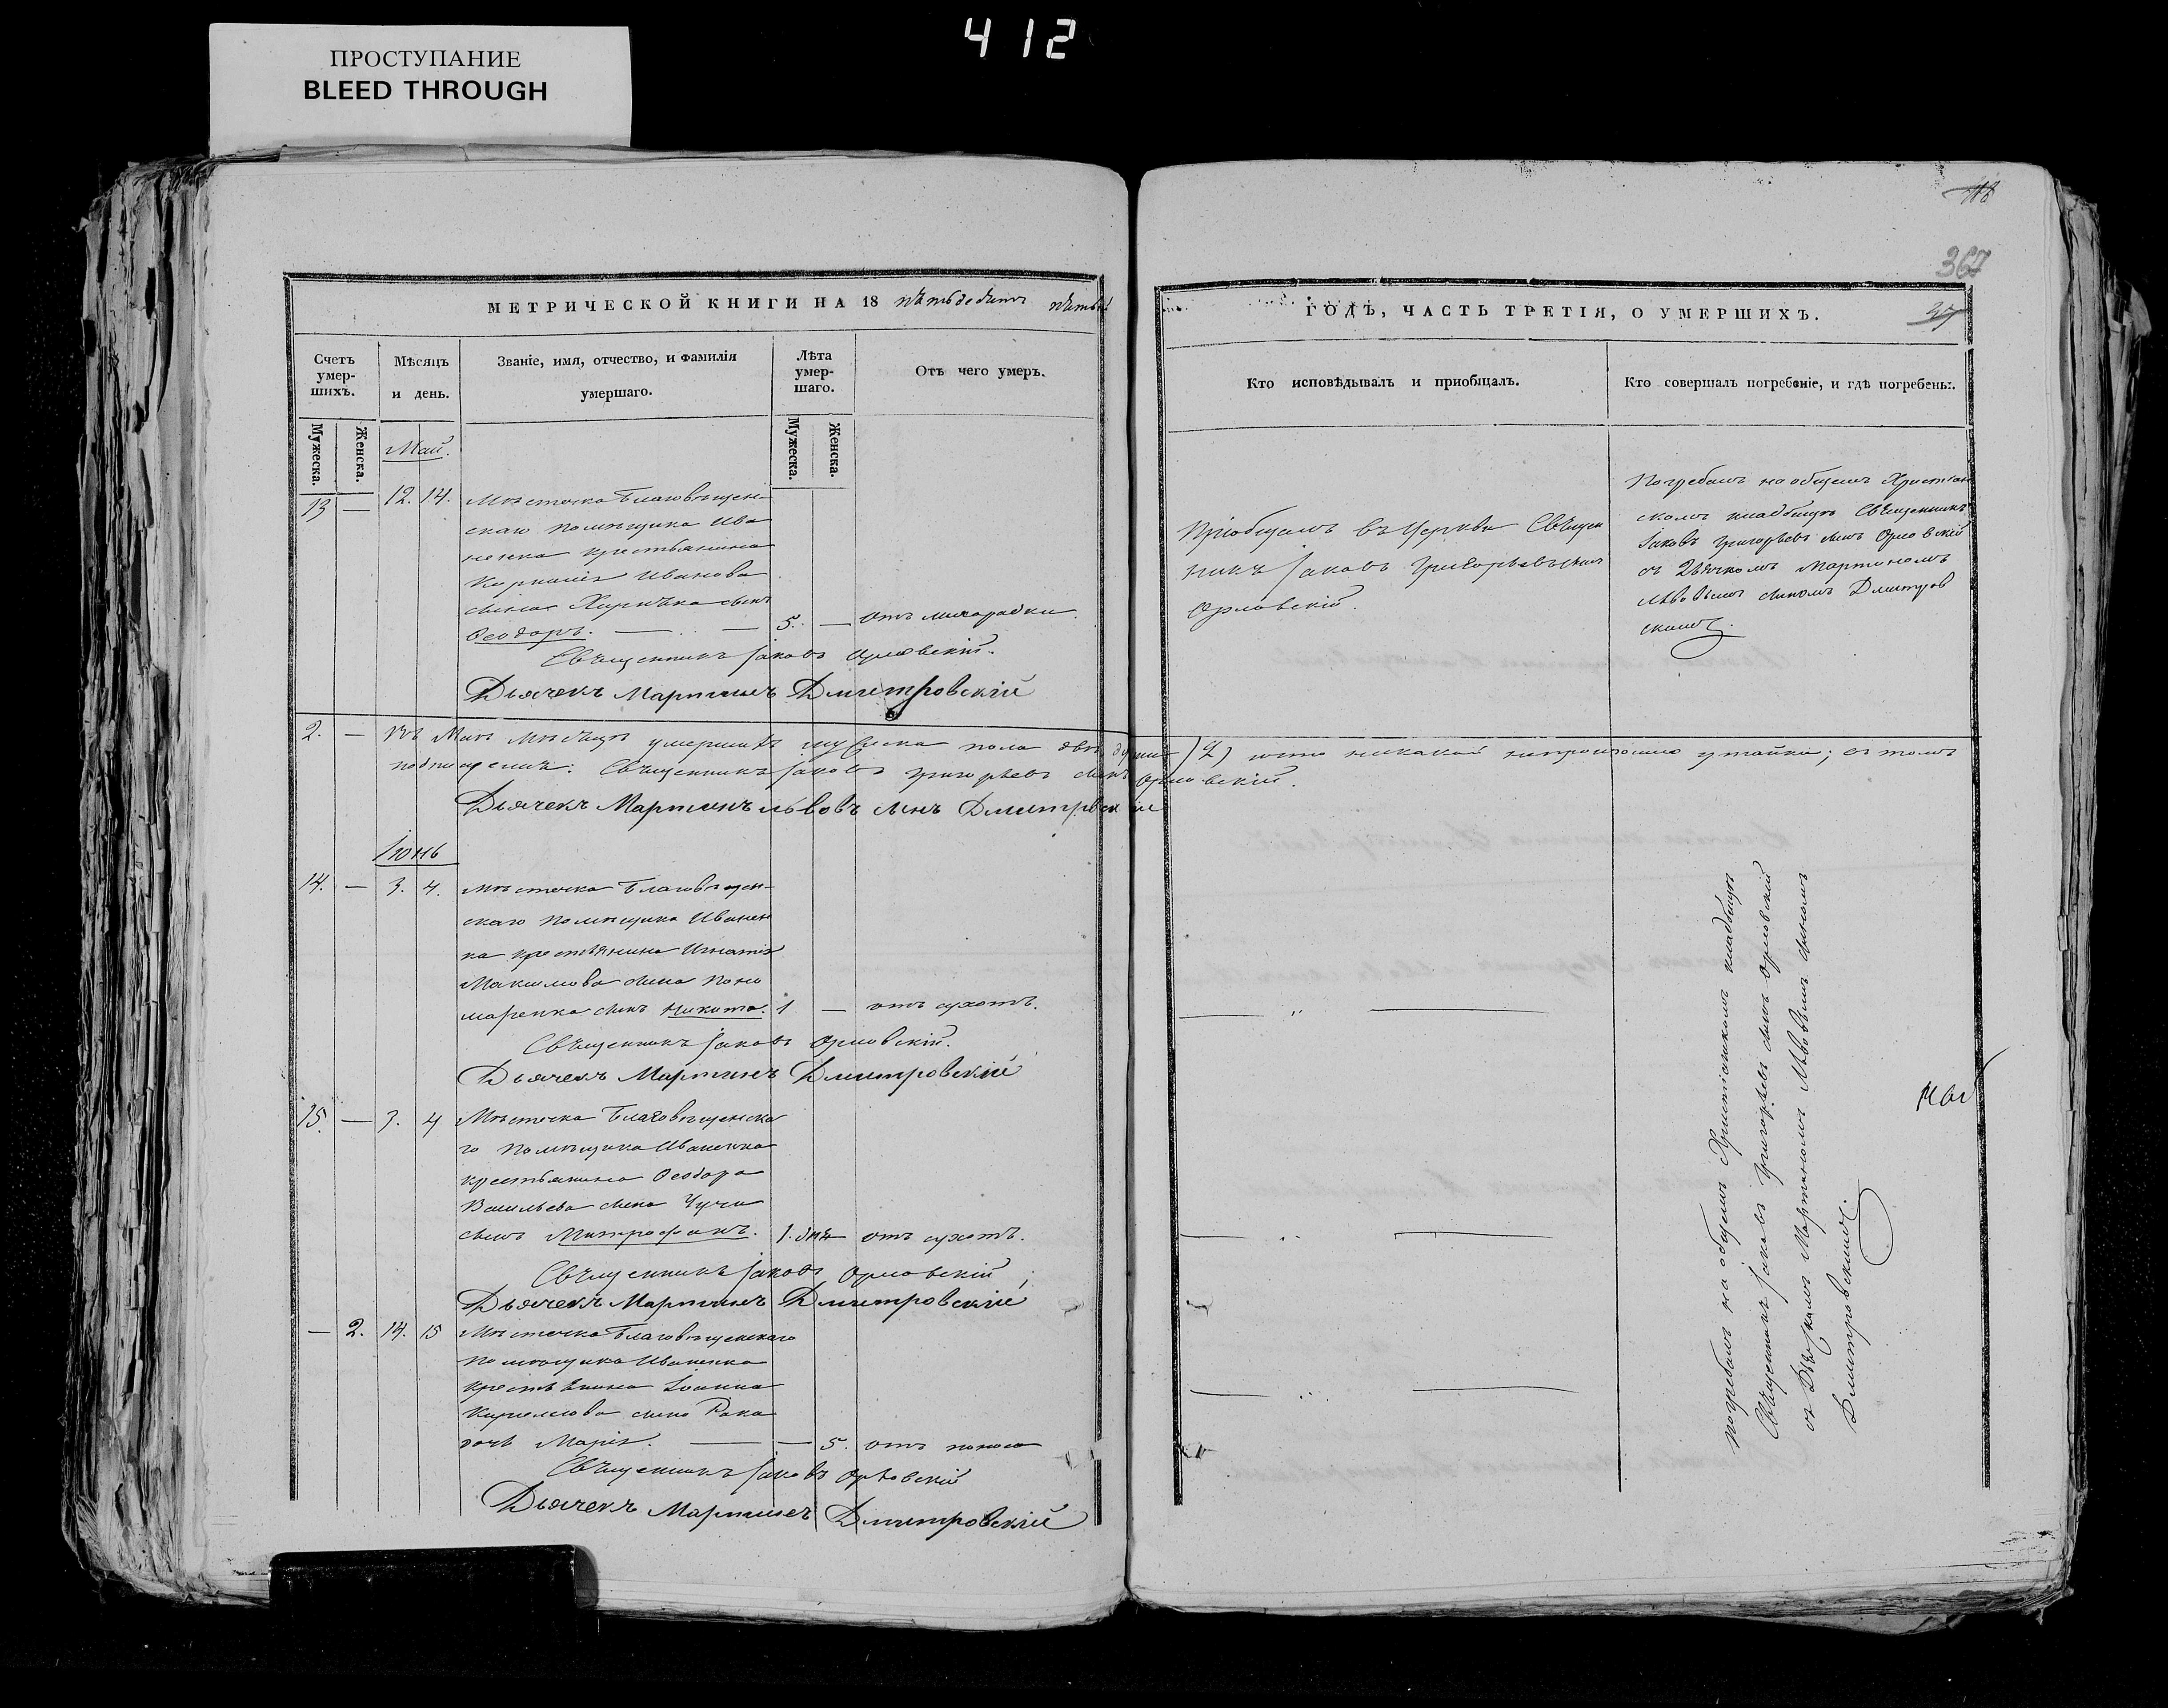 412
ПРОСТУПАНИЕ
BLEED THROUGH
118
367
37
МЕТРИЧЕСКОЙ КНИГИ НА 18 пятьдесятъ пятый
ГОДЪ, ЧАСТЬ ТРЕТІЯ, О УМЕРШИХЪ.
Счетъ умер-шихъ.
Мужеска.
Женска.
Мѣсяцъ
и день.
Званіе, имя, отчество, и фамилія
умершаго.
Лѣта умер-шаго.
Мужеска.
Женска.
Отъ чего умеръ.
Кто исповѣдывалъ и пріобщалъ.
Кто совершалъ погребеніе, и гдѣ погребены.
Май.
13 — 12. 14. Мѣстечка Благовѣщен-
скаго помѣщика Ива
ненка крестьянина
Корнилія Иванова
сына сынъ
Ѳеодоръ. — 5. — отъ лихорадки.
Священникъ Іаковъ Орловскій.
Дьячекъ Мартинъ Дмитровскій
Пріобщалъ въ Церкви Священ
никъ Іаковъ Григорьевъ сынъ
Орловскій.
Погребалъ на общемъ Христіан
скомъ кладбищѣ Священникъ
Іаковъ Григорьевъ сынъ Орловскій
съ Дьячкомъ Мартиномъ
Львовымъ сыномъ Дмитров
скимъ.
2. — Въ Маѣ мѣсяцѣ умершихъ мужеска пола двѣ души (2) что никакой непроизошло утайки; въ томъ
подписуемся: Священникъ Іаковъ Григорьевъ сынъ Орловскій.
Дьячекъ Мартинъ Львовъ сынъ Дмитровскій
Іюнь
14. — 3. 4. Мѣстечка Благовѣщен-
скаго помѣщика Иванен
ка крестьянина Игнатія
Максимова сына Поно
маренка сынъ Никита. 1 — отъ сухотъ.
Священникъ Іаковъ Орловскій.
Дьячекъ Мартинъ Дмитровскій
15. — 3. 4 Мѣстечка Благовѣщенска
го помѣщика Иваненка
крестьянина Ѳеодора
Васильева сына
сынъ Митрофанъ. 1. — отъ сухотъ.
Священникъ Іаковъ Орловскій
Дьячекъ Мартинъ Дмитровскій
— 2. 14. 15 Мѣстечка Благовѣщенскаго
помѣщика Иваненка
крестьянина Іоанна
сына
дочь Марія. — — 5. отъ поноса
Священникъ Іаковъ Орловскій
Дьячекъ Мартинъ Дмитровскій
Погребалъ на общемъ Христіанскомъ кладбищѣ
Священникъ Іаковъ Григорьевъ сынъ Орловскій
съ Дьячкомъ Мартиномъ Львовымъ сыномъ
Дмитровскимъ.